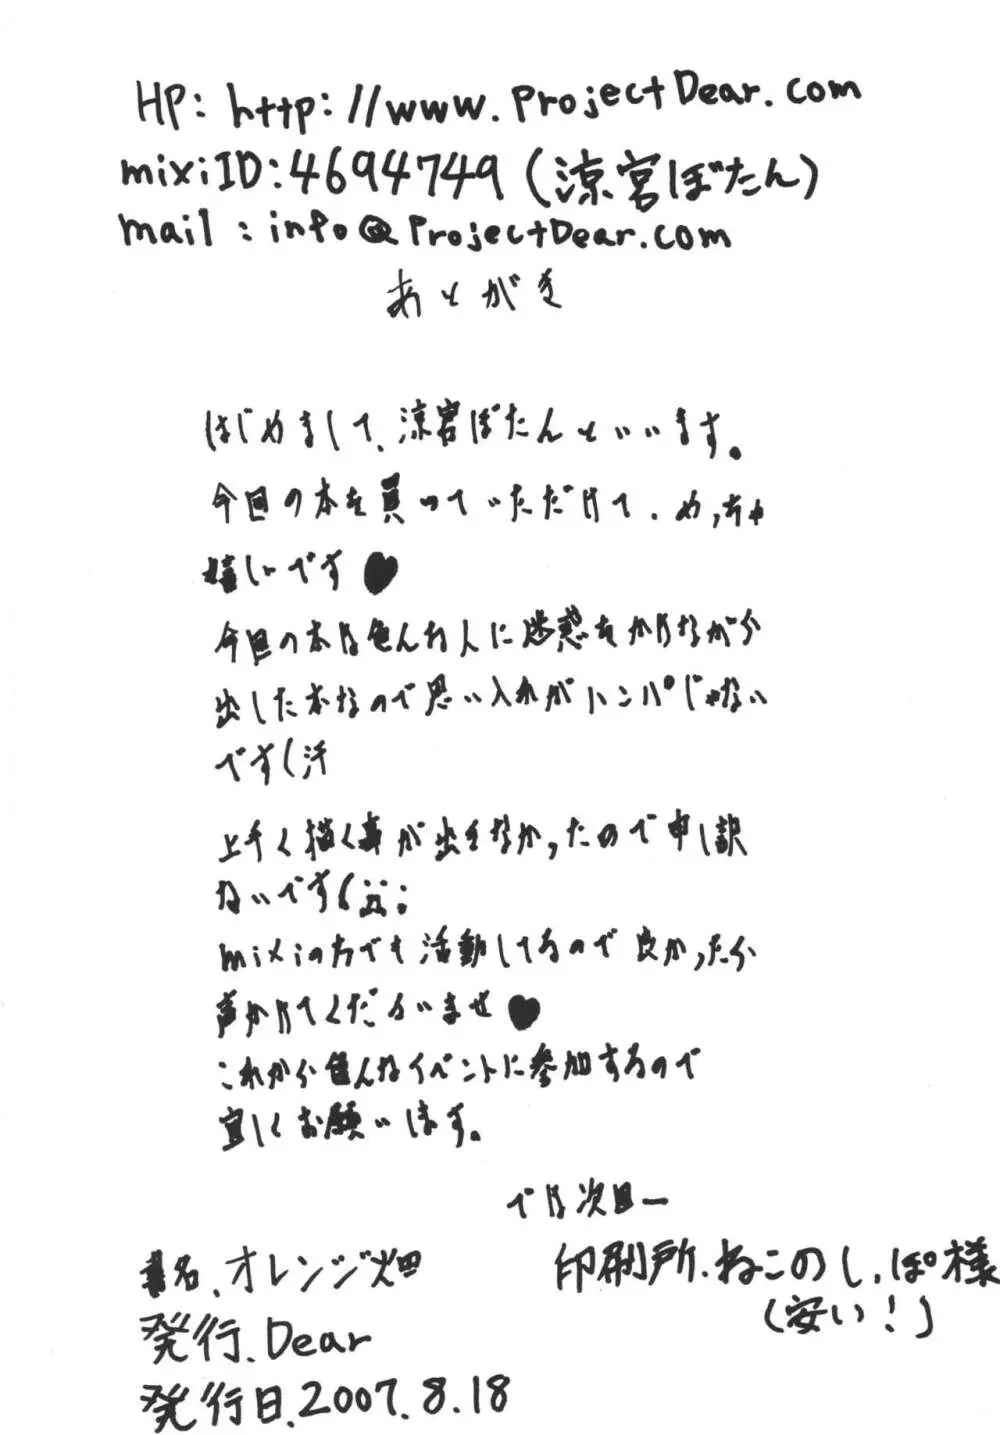 HP: http://www.ProjectDear.com
mixiID:4694749(涼宮ぼたん)
mail:info@ProjectDear.com
あとがき
はじめまして、涼宮ぼたんといいます。
今回の本を買っていただけて、めっちゃ
嬉しいです♥
今回の本は色んな人に迷惑をかけながら
出した本なので思い入れがハンパじゃない
です(汗
上手く描く事が出きなかったので申し訳
ないです(__;
mixiの方でも活動してるので良かったら
声かけてくださいませ♥
これから色んなイベントに参加するので
宜しくお願いします。
では次回ー
書名.オレンジ畑
発行.Dear
発行日.2007.8.18
印刷所.ねこのしっぽ様
(安い!)